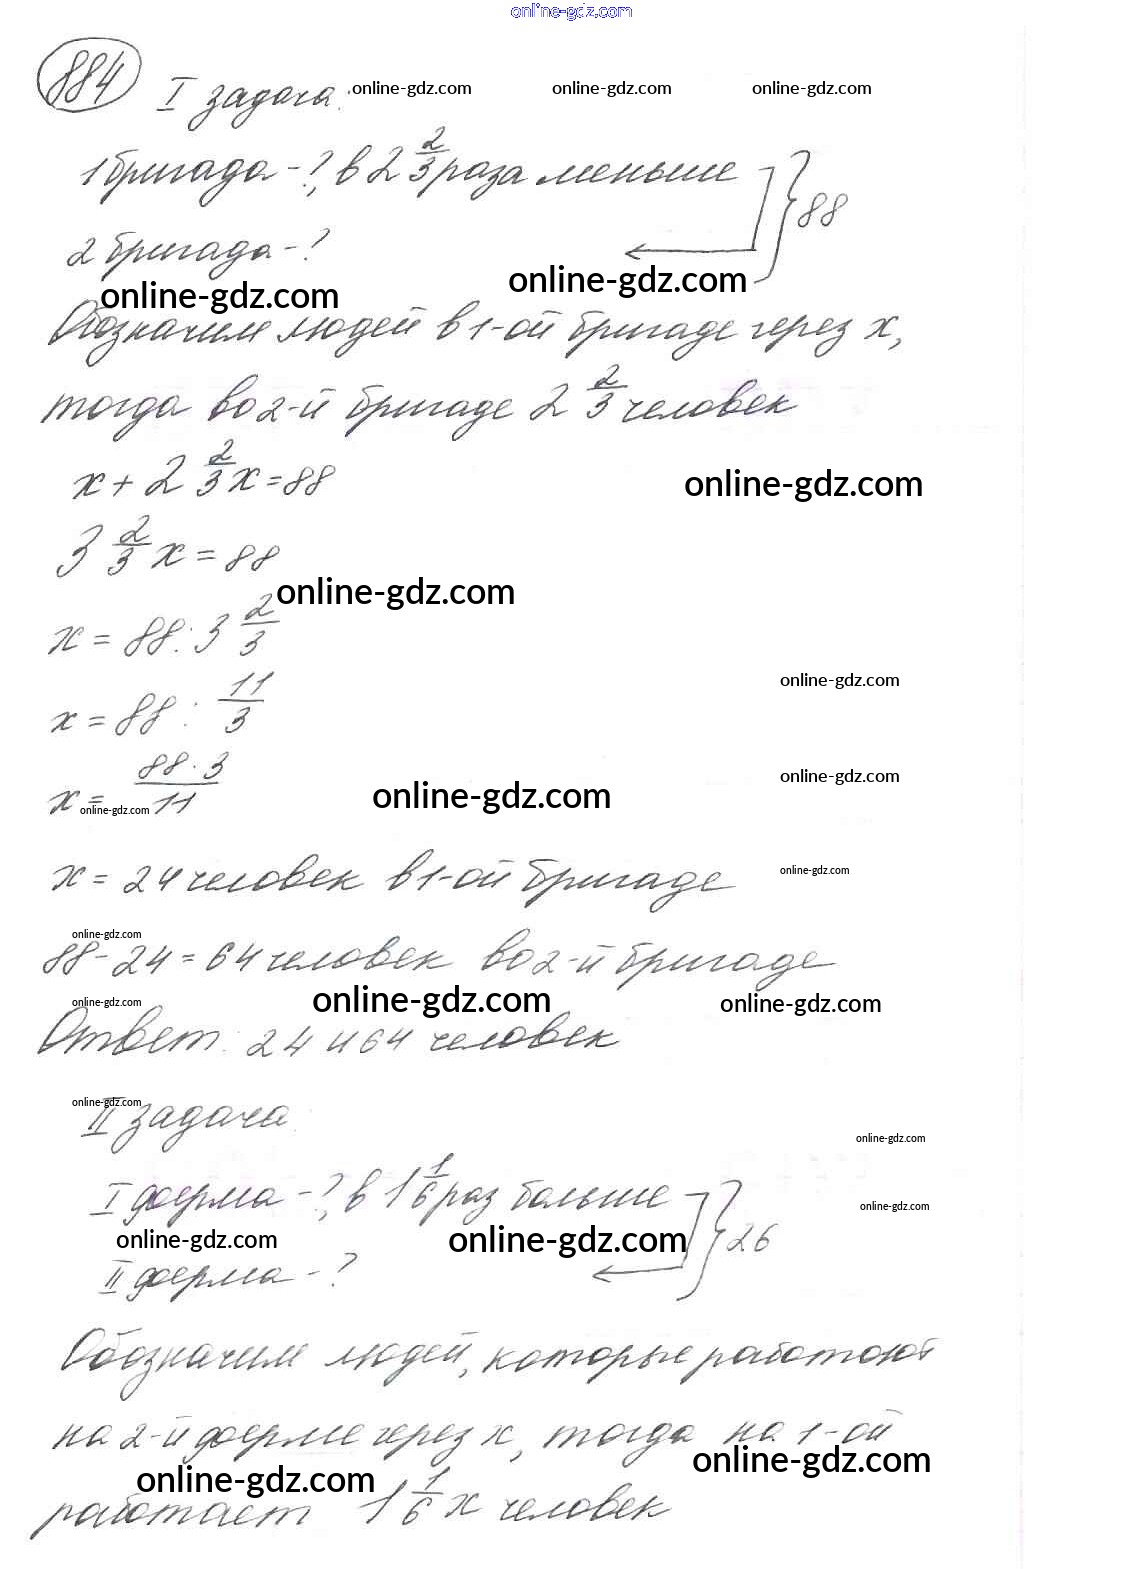 online-gdz.com
884
I задача.
online-gdz.com online-gdz.com online-gdz.com
1 бригада - ?, в 2 2/3 раза меньше
88
2 бригада - ?
online-gdz.com online-gdz.com
Обозначим людей в 1-ой бригаде через x,
тогда во 2-й бригаде 2 2/3 человек
x + 2 2/3 x = 88
online-gdz.com
3 2/3 x = 88
online-gdz.com
x = 88 : 3 2/3
online-gdz.com
x = 88 : 11/3
online-gdz.com
x = 88 · 3/11
online-gdz.com online-gdz.com
x = 24 человек в 1-ой бригаде
online-gdz.com
online-gdz.com
88 - 24 = 64 человек во 2-й бригаде
online-gdz.com online-gdz.com online-gdz.com
Ответ: 24 и 64 человек
online-gdz.com
II задача.
online-gdz.com
I ферма - ?, в 1 1/6 раз больше
online-gdz.com
26
online-gdz.com online-gdz.com
II ферма - ?
Обозначим людей, которые работают
на 2-й ферме через x, тогда на 1-ой
online-gdz.com online-gdz.com
работает 1 1/6 x человек